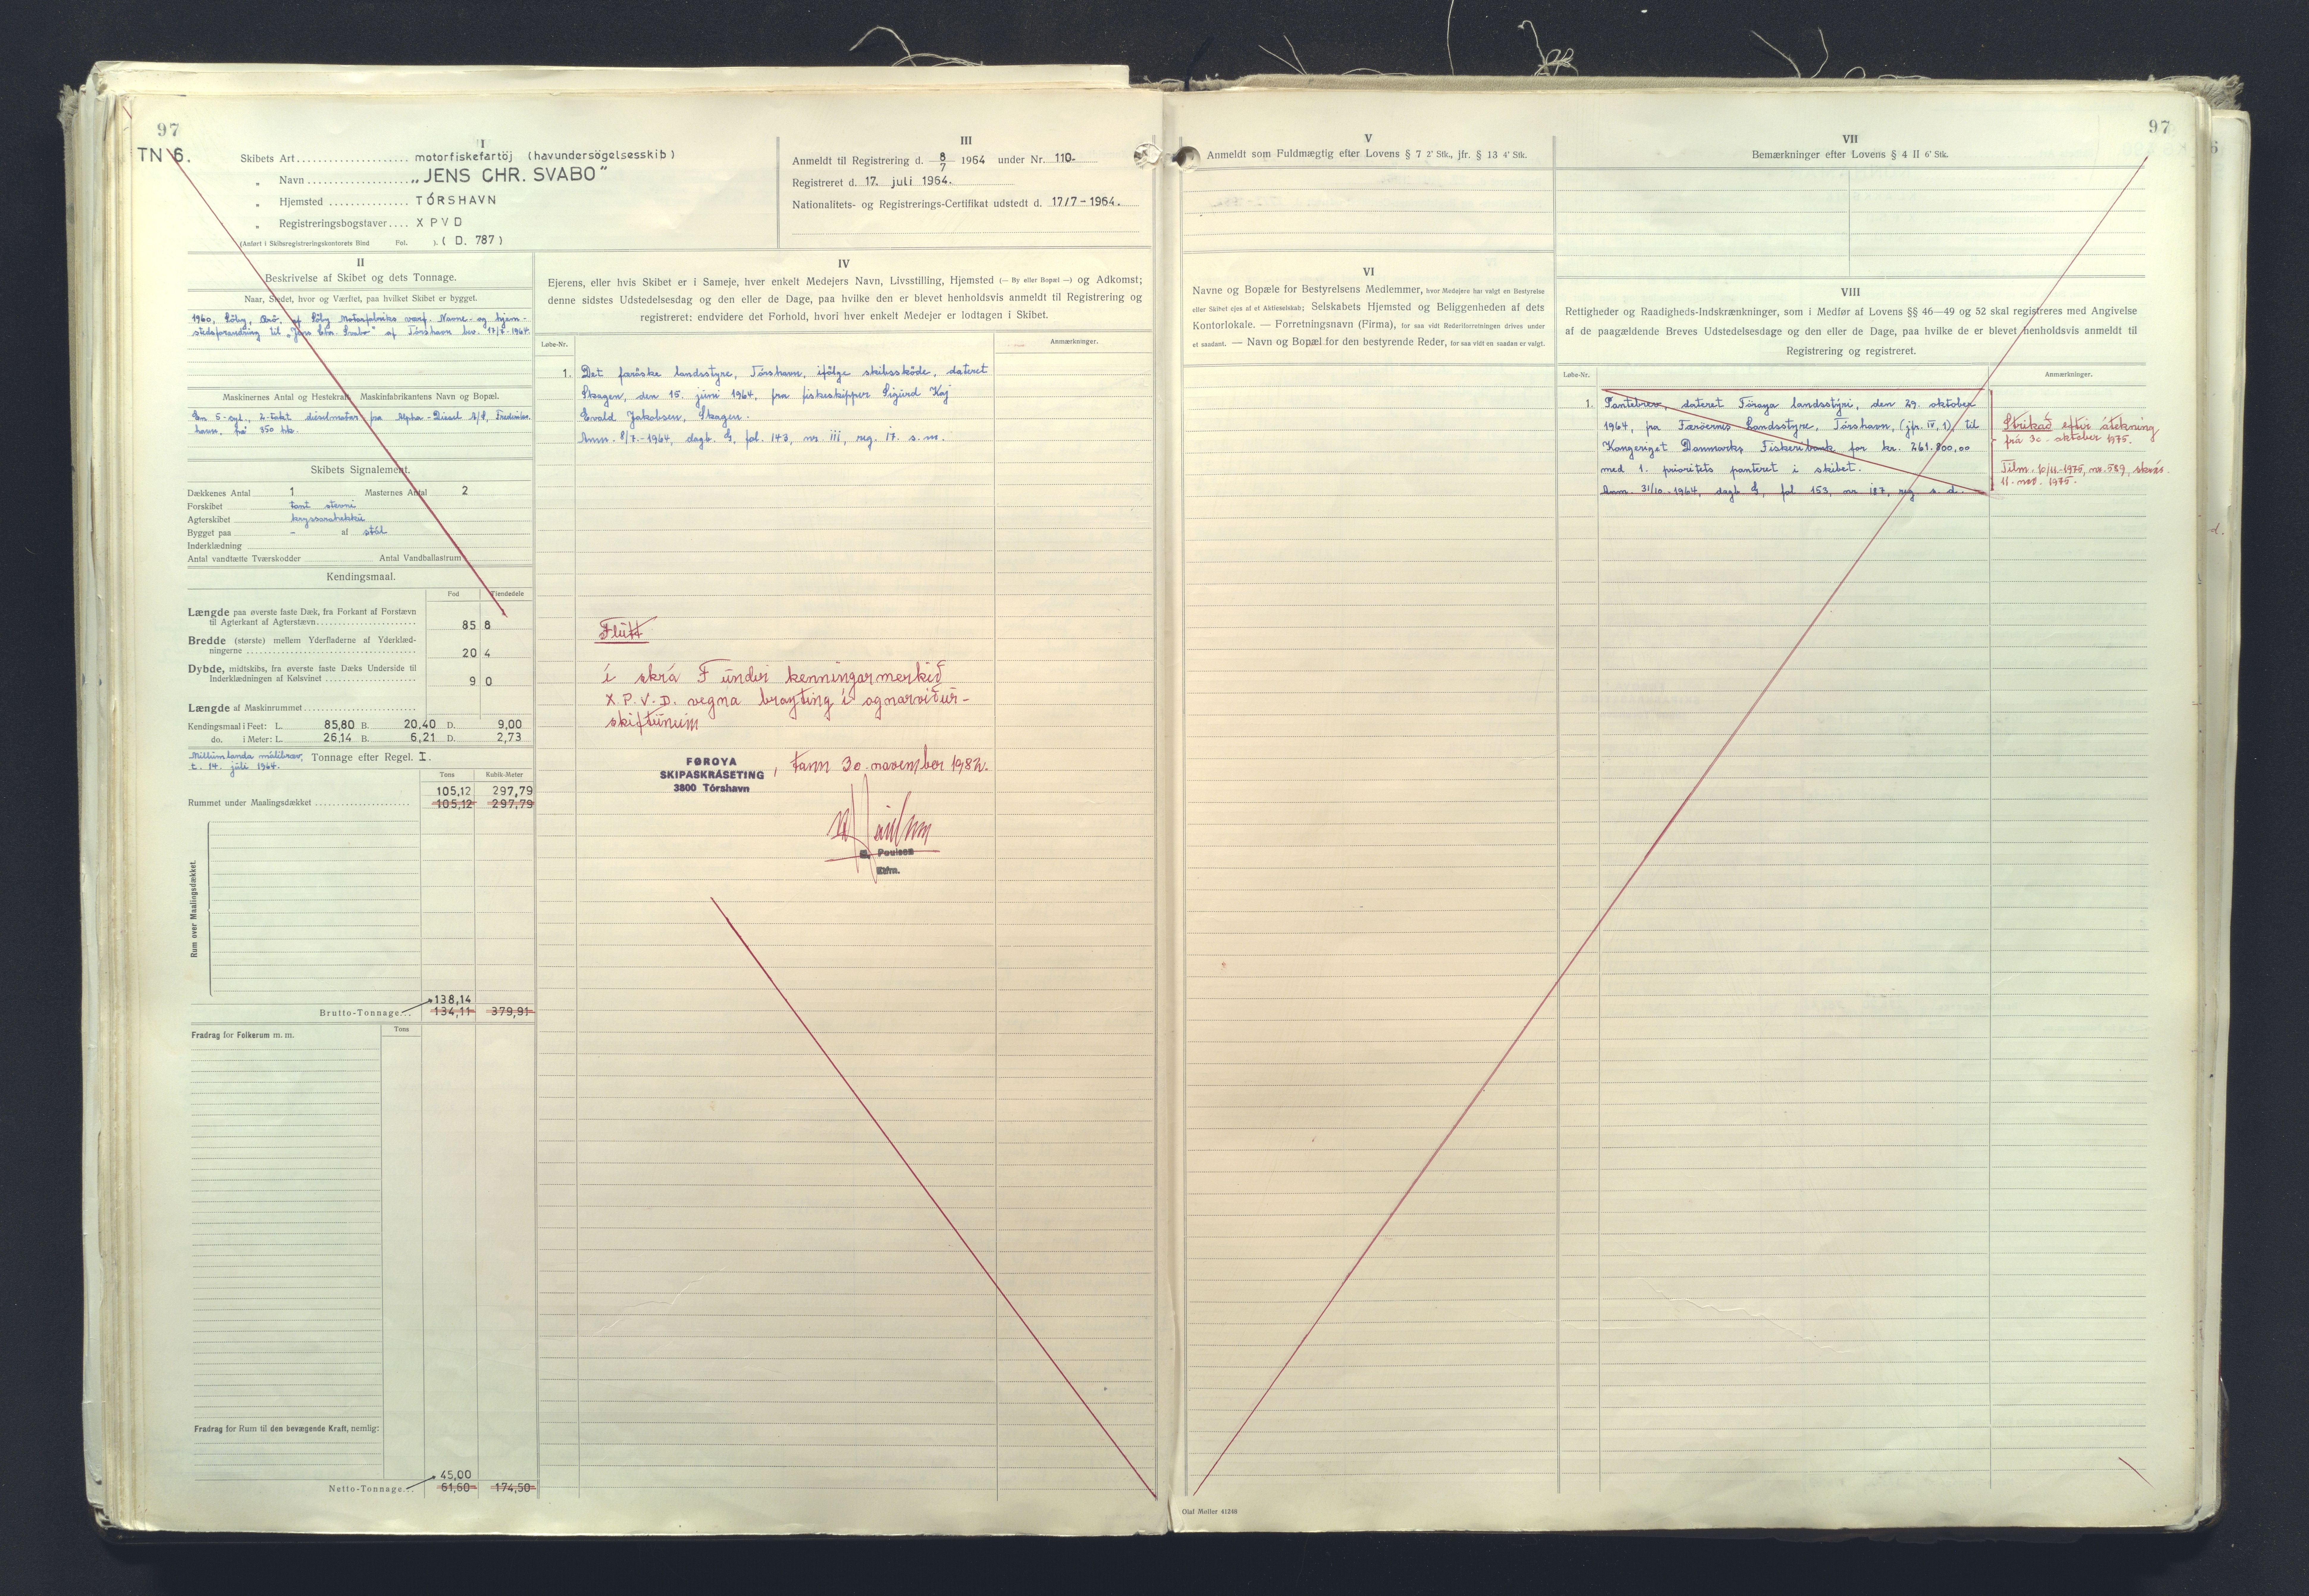 97
TN 6.
I
Skibets Art.................... motorfiskefartöj (havundersögelsesskib)
„ Navn.................. „JENS CHR. SVABO"
„ Hjemsted .............. TÓRSHAVN
„ Registreringsbogstaver.... X P V D
(Anført i Skibsregistreringskontorets Bind Fol. ). ( D. 787 )
III
Anmeldt til Registrering d. 8/7 1964 under Nr. 110.
Registreret d. 17. juli 1964.
Nationalitets- og Registrerings-Certifikat udstedt d. 17/7-1964.
II
Beskrivelse af Skibet og dets Tonnage.
Naar, Stedet, hvor og Værftet, paa hvilket Skibet er bygget.
1960, Söby, Ærö, af Söby Motorfabriks værf. Navne- og hjem-
stedsforandring til „Jens Chr. Svabo" af Tórshavn bev. 17/7-1964.
Maskinernes Antal og Hestekraft, Maskinfabrikantens Navn og Bopæl.
En 5-cyl., 2-takt dieselmotor fra Alpha-Diesel A/S, Frederiks-
havn, frá 350 hk.
Skibets Signalement.
Dækkenes Antal 1 Masternes Antal 2
Forskibet tont stevni
Agterskibet kryssarahekka
Bygget paa - af stál
Inderklædning
Antal vandtætte Tværskodder Antal Vandballastrum
Kendingsmaal.
Fod Tiendedele
Længde paa øverste faste Dæk, fra Forkant af Forstævn
til Agterkant af Agterstævn........................ 85 8
Bredde (største) mellem Yderfladerne af Yderklæd-
ningerne ........................................ 20 4
Dybde, midtskibs, fra øverste faste Dæks Underside til
Inderklædningen af Kølsvinet ...................... 9 0
Længde af Maskinrummet............................
Kendingsmaal i Feet: L. 85,80 B. 20,40 D. 9,00
do. i Meter: L. 26,14 B. 6,21 D. 2,73
Millumlanda málibrev, Tonnage efter Regel. I.
t. 14. júli 1964.
Tons Kubik-Meter
105,12 297,79
Rummet under Maalingsdækket ........................ 105,12 297,79
Rum over Maalingsdækket.
138,14
Brutto-Tonnage... 134,11 379,91
Fradrag for Folkerum m. m.
Tons
Fradrag for Rum til den bevægende Kraft, nemlig:
45,00
Netto-Tonnage... 61,60 174,50
IV
Ejerens, eller hvis Skibet er i Sameje, hver enkelt Medejers Navn, Livsstilling, Hjemsted (— By eller Bopæl —) og Adkomst;
denne sidstes Udstedelsesdag og den eller de Dage, paa hvilke den er blevet henholdsvis anmeldt til Registrering og
registreret; endvidere det Forhold, hvori hver enkelt Medejer er lodtagen i Skibet.
Løbe-Nr.
Anmærkninger.
1. Det færöske landsstyre, Tórshavn, ifölge skibsskøde, dateret
Skagen, den 15. juni 1964, fra fiskeskipper Sigurd Kaj
Evald Jakobsen, Skagen.
Anm. 8/7.-1964, dagb. G, fol. 143, nr. 111, reg. 17. s. m.
Flutt
í skrá F undir kenningarmerkið
X.P.V.D. vegna brayting í ognarviður-
skiftunum
FØROYA
SKIPASKRÁSETING
3800 Tórshavn
, tann 30. november 1982.
Poulsen
V
Anmeldt som Fuldmægtig efter Lovens § 7 2' Stk., jfr. § 13 4' Stk.
VI
Navne og Bopæle for Bestyrelsens Medlemmer, hvor Medejere har valgt en Bestyrelse
eller Skibet ejes af et Aktieselskab; Selskabets Hjemsted og Beliggenheden af dets
Kontorlokale. — Forretningsnavn (Firma), for saa vidt Rederiforretningen drives under
et saadant. — Navn og Bopæl for den bestyrende Reder, for saa vidt en saadan er valgt.
Olaf Møller 41248
97
VII
Bemærkninger efter Lovens § 4 II 6' Stk.
VIII
Rettigheder og Raadigheds-Indskrænkninger, som i Medfør af Lovens §§ 46—49 og 52 skal registreres med Angivelse
af de paagældende Breves Udstedelsesdage og den eller de Dage, paa hvilke de er blevet henholdsvis anmeldt til
Registrering og registreret.
Løbe-Nr.
Anmærkninger.
1. Pantebrev, dateret Föroya landsstýri, den 29. oktober
1964, fra Færöernes Landsstyre, Tórshavn, (jfr. IV, 1), til
Kongeriget Danmarks Fiskeribank for kr. 261.800,00
med 1. prioritets panteret i skibet.
Anm. 31/10.-1964, dagb. G, fol. 153, nr. 187, reg. s. d.
Strikað eftir átekning
frá 30. oktober 1975.
Tilm. 10/11.-1975, nr. 589, skrás.
11. nov. 1975.